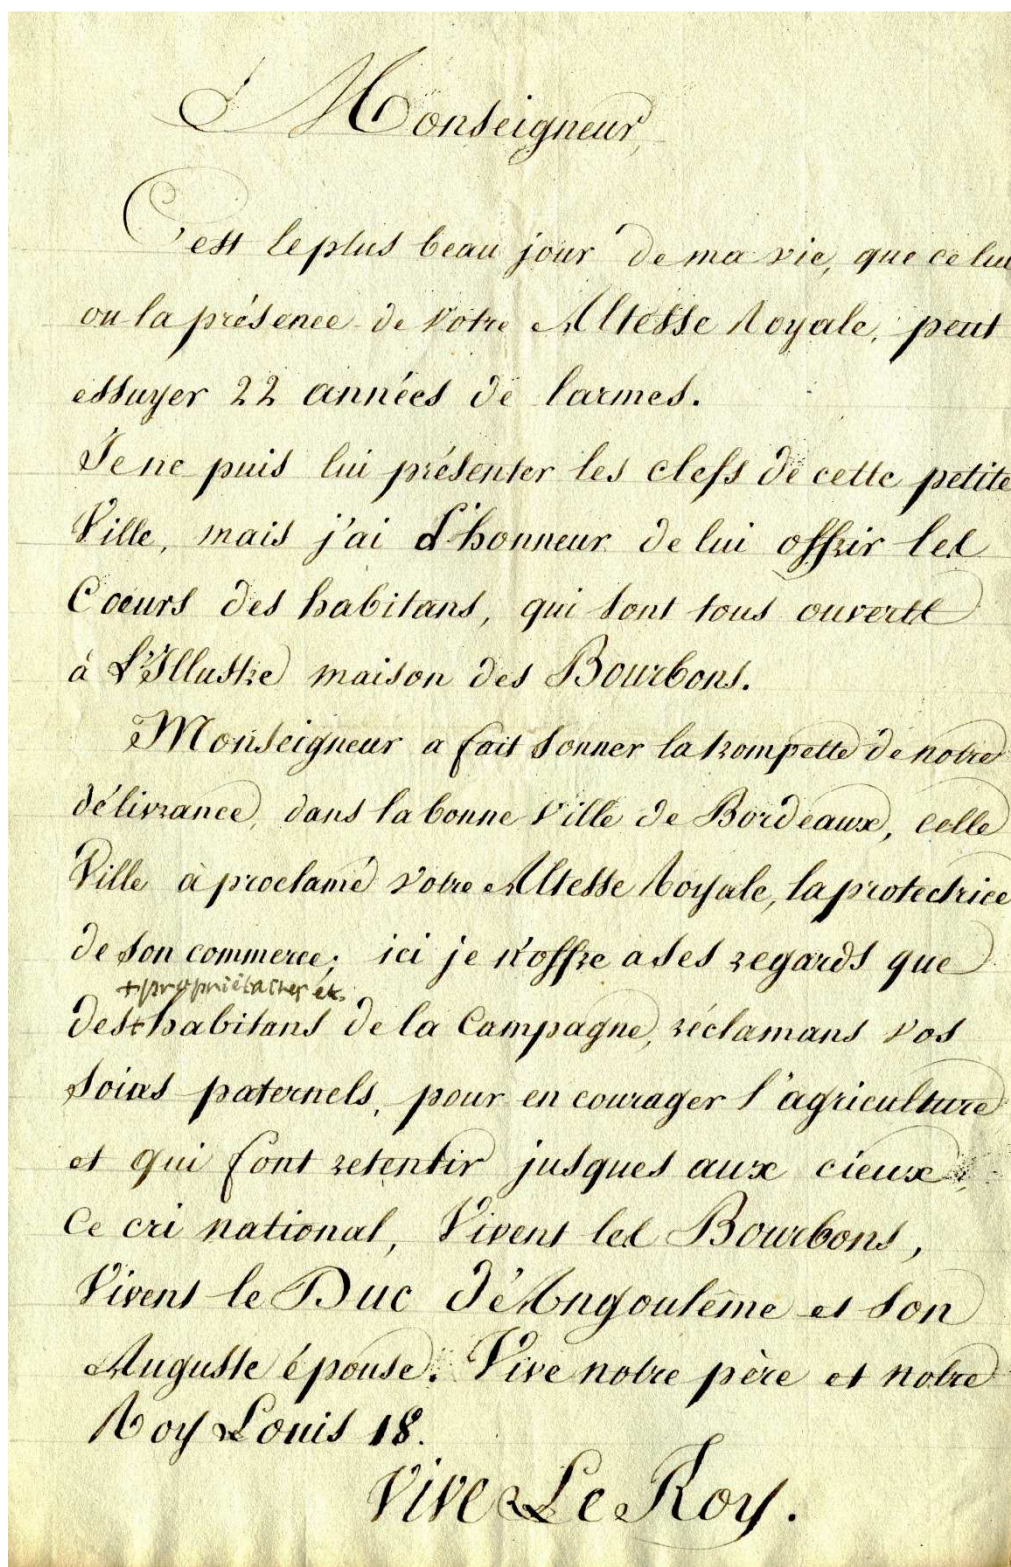 Monseigneur,
C'est le plus beau jour de ma vie, que celui
ou la présence de Votre Altesse Royale, peut
essuyer 22 années de larmes.
Je ne puis lui présenter les clefs de cette petite
Ville, mais j'ai d'honneur de lui offrir les
Coeurs des habitans, qui sont tous ouverts
à L'Illustre maison des Bourbons.
Monseigneur a fait sonner la trompette de notre
délivrance, dans la bonne Ville de Bordeaux, celle
Ville à proclamé Votre Altesse Royale, la protectrice
de son commerce; ici je n'offre a ses regards que
+ propriétaires et
des + habitans de la Campagne, réclamans vos
soins paternels, pour en courager l'agriculture
et qui font retentir jusques aux cieux
Ce cri national, Vivent les Bourbons,
Vivent le Duc d'Angoulême et son
Auguste épouse. Vive notre père et notre
Roy Louis 18.
Vive Le Roy.